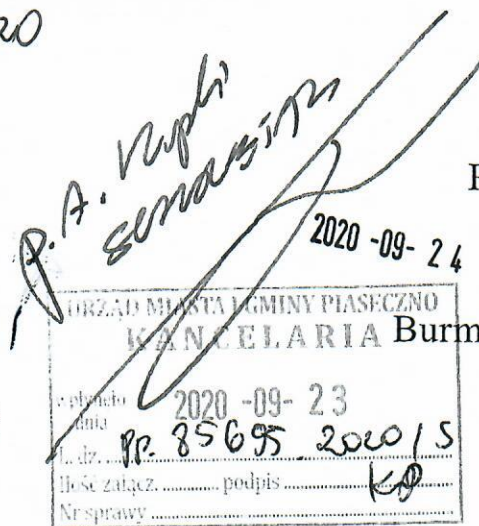 20
P. A.
P
2020 -09- 2 4
URZĄD MIASTA I GMINY PIASECZNO
KANCELARIA Burm
wpłynęło
dnia 2020 -09- 2 3
L. dz. PP. 85695 2020/S
Ilość załącz. podpis KP
Nr sprawy